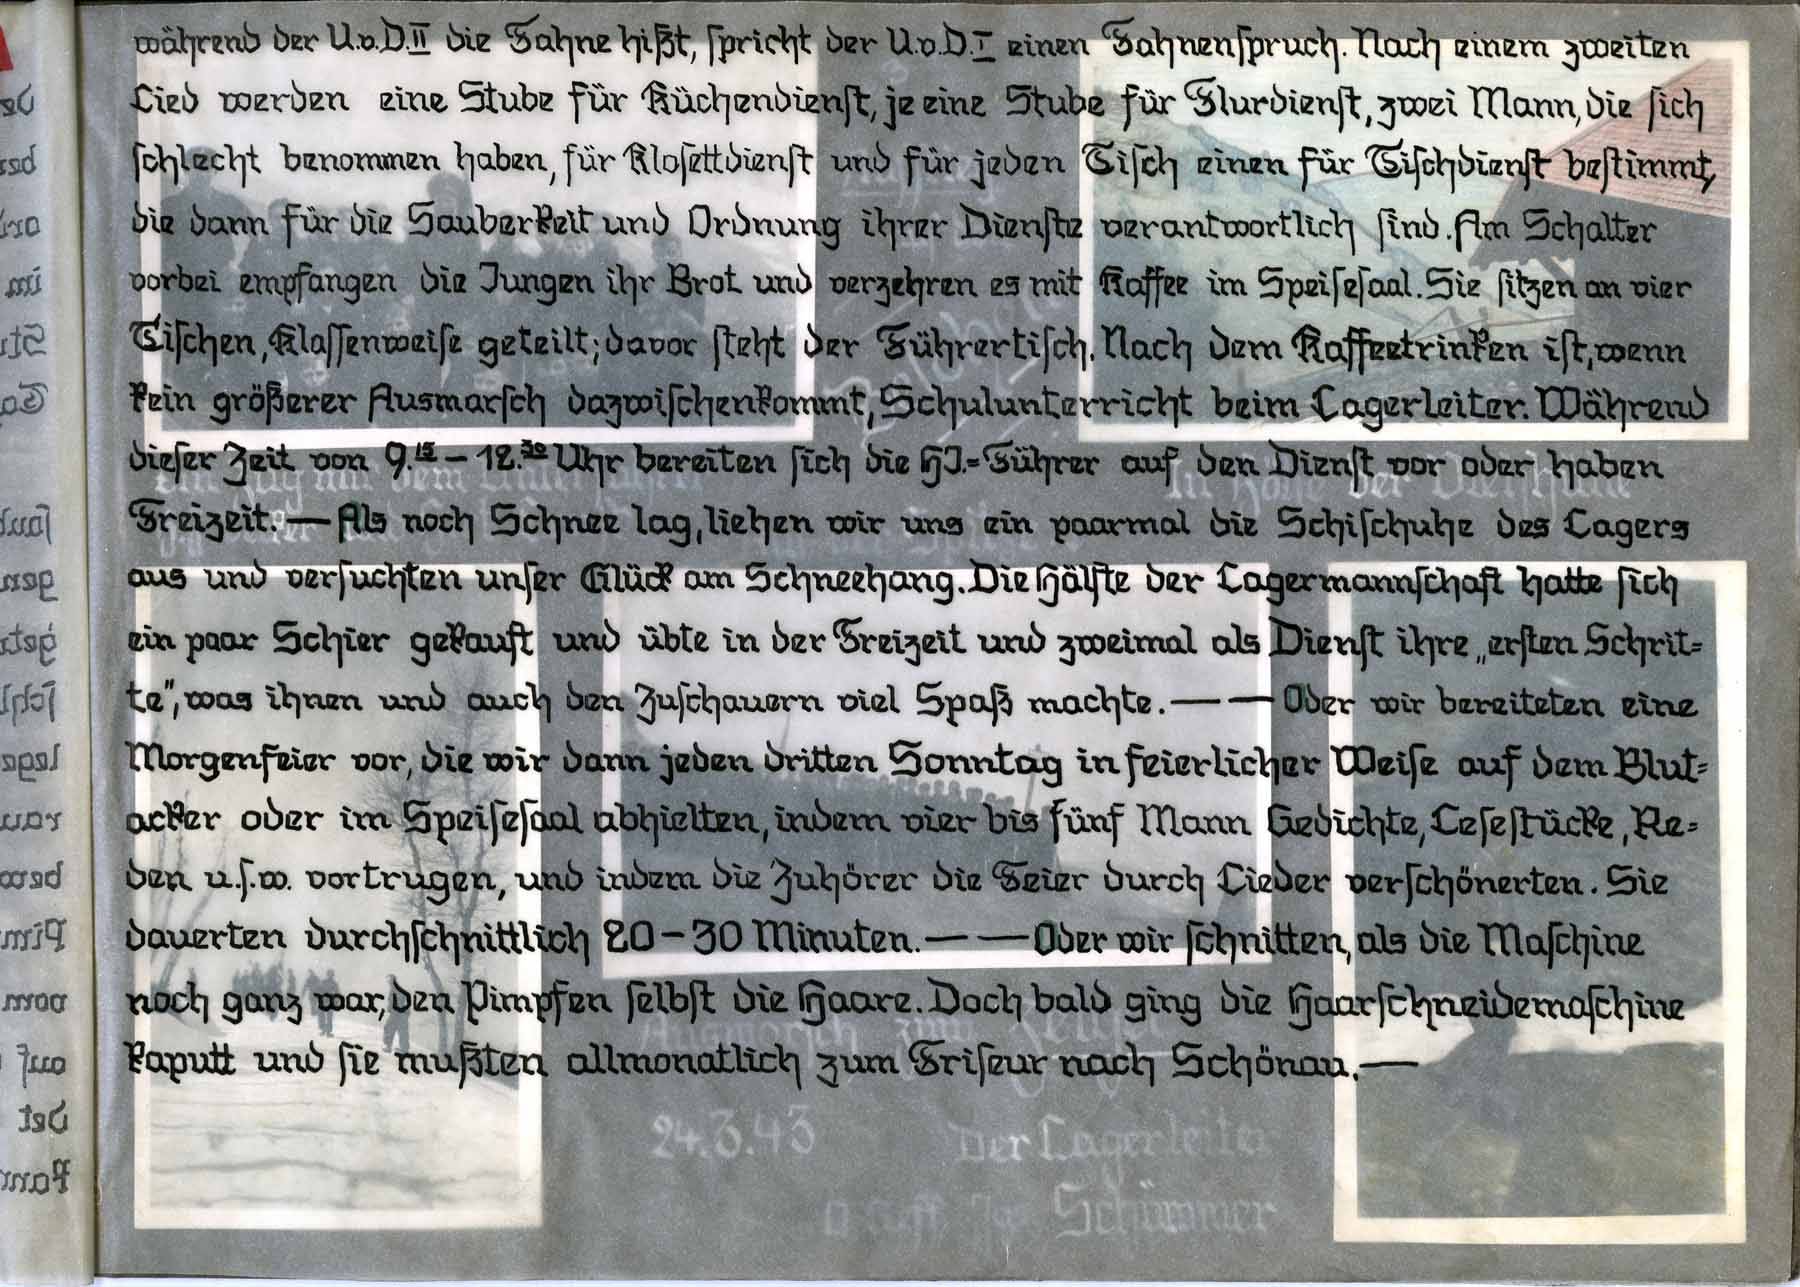 während der U.v.D.II die Fahne hißt, spricht der U.v.D.I einen Fahnenspruch. Nach einem zweiten
Lied werden eine Stube für Küchendienst, je eine Stube für Flurdienst, zwei Mann, die sich
schlecht benommen haben, für Klosettdienst und für jeden Tisch einen für Tischdienst bestimmt,
die dann für die Sauberkeit und Ordnung ihrer Dienste verantwortlich sind. Am Schalter
vorbei empfangen die Jungen ihr Brot und verzehren es mit Kaffee im Speisesaal. Sie sitzen an vier
Tischen, Klassenweise geteilt; davor steht der Führertisch. Nach dem Kaffeetrinken ist, wenn
kein größerer Ausmarsch dazwischenkommt, Schulunterricht beim Lagerleiter. Während
dieser Zeit von 9.15 – 12.30 Uhr bereiten sich die HJ.=Führer auf den Dienst vor oder haben
Freizeit. — Als noch Schnee lag, liehen wir uns ein paarmal die Schischuhe des Lagers
aus und versuchten unser Glück am Schneehang. Die Hälfte der Lagermannschaft hatte sich
ein paar Schier gekauft und übte in der Freizeit und zweimal als Dienst ihre „ersten Schrit=
te", was ihnen und auch den Zuschauern viel Spaß machte. — — Oder wir bereiteten eine
Morgenfeier vor, die wir dann jeden dritten Sonntag in feierlicher Weise auf dem Blut=
acker oder im Speisesaal abhielten, indem vier bis fünf Mann Gedichte, Lesestücke, Re=
den u.s.w. vortrugen, und indem die Zuhörer die Feier durch Lieder verschönerten. Sie
dauerten durchschnittlich 20 – 30 Minuten. — — Oder wir schnitten, als die Maschine
noch ganz war, den Pimpfen selbst die Haare. Doch bald ging die Haarschneidemaschine
kaputt und sie mußten allmonatlich zum Friseur nach Schönau. —
24.3.43 Der Lagerleiter
Schümmer